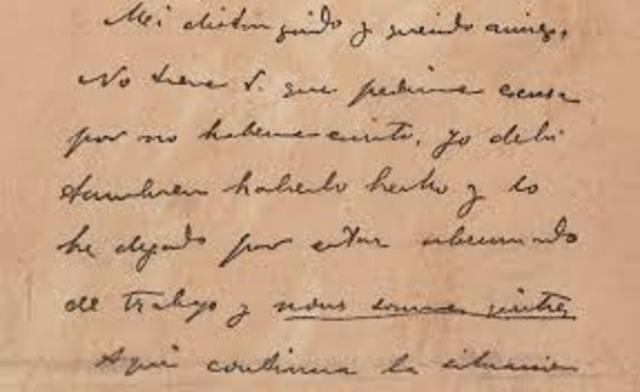 Mi distinguido y querido amigo,
No tiene V. que pedirme excusa
por no haberme escrito, yo debí
tambien haberlo hecho y lo
he dejado por estar abrumado
de trabajo y nous sommes quittes
Aquí continua la situacion